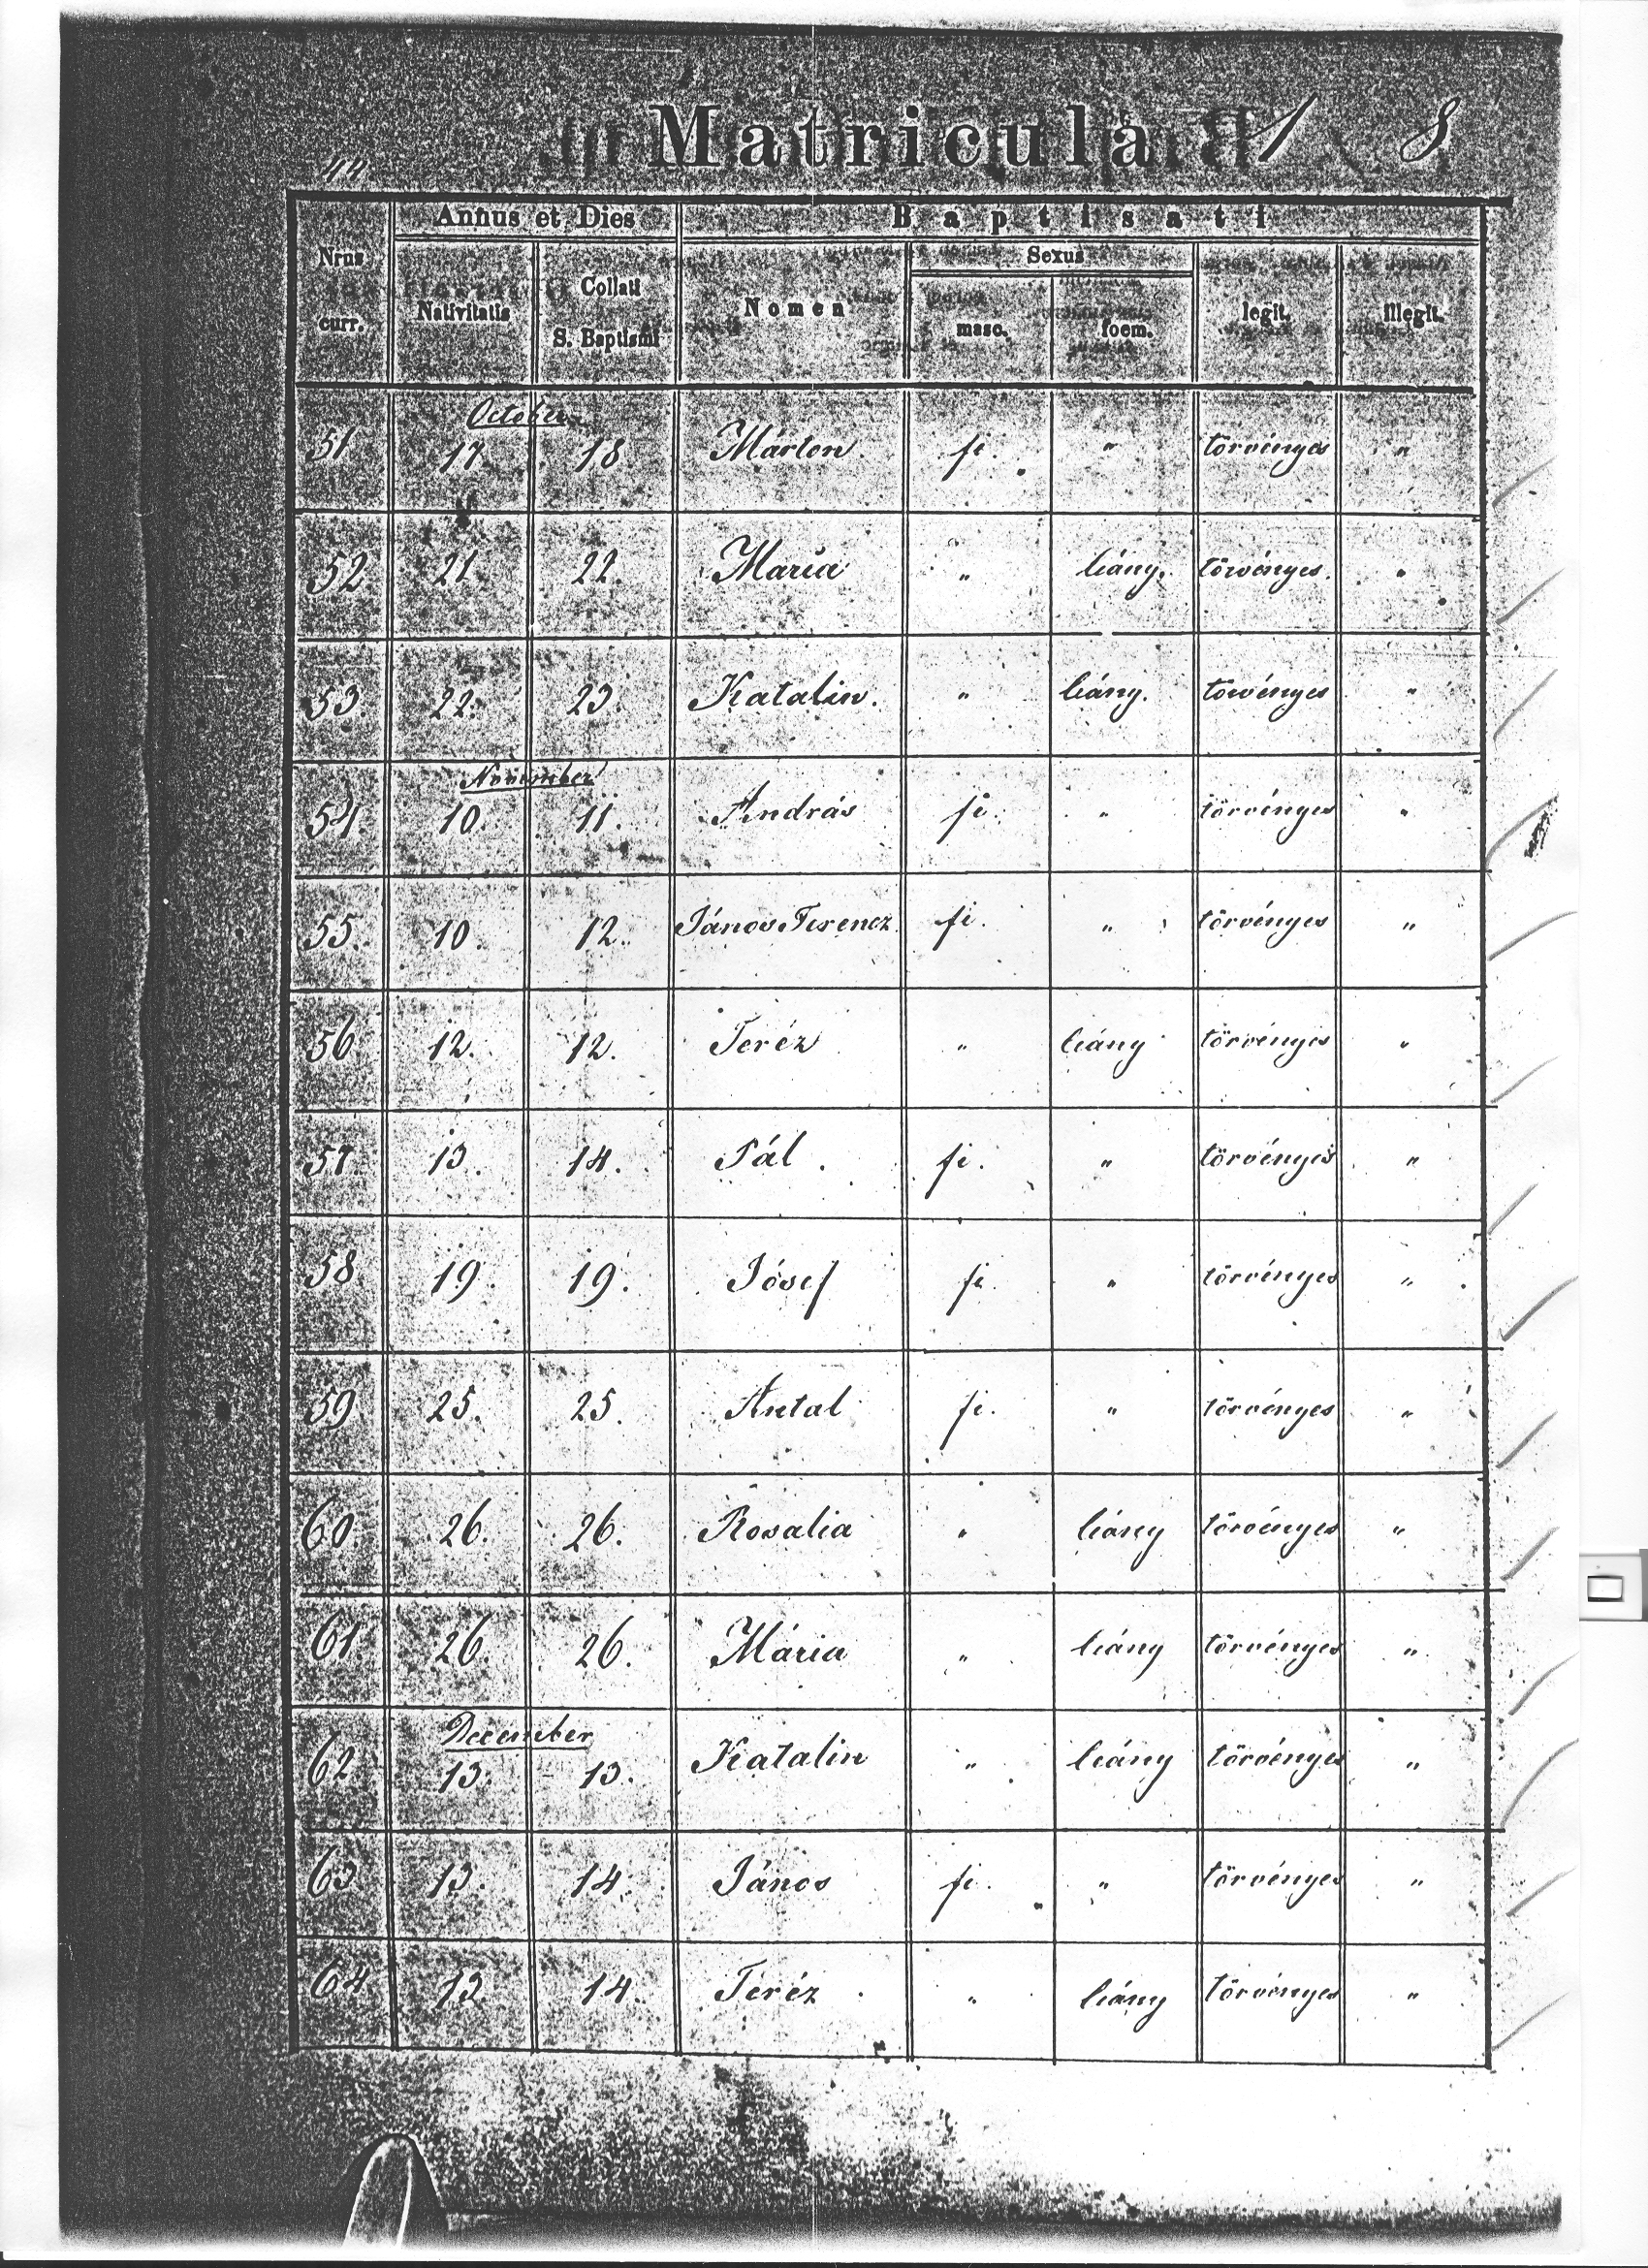 Matricula 1 8
44
Annus et Dies Baptisati
Nrus curr. Nativitatis Collati S. Baptismi Nomen Sexus masc. foem. legit. illegit.
October
51 17. 18 Márton. fi. " törvényes "
52 21 22. Maria " leány. törvényes. "
53. 22. 23. Katalin. " leány. törvényes "
November
54. 10. 11. András fi. " törvényes "
55. 10. 12. János Ferencz. fi. " törvényes "
56 12. 12. Teréz " leány törvényes "
57. 13. 14. Pál. fi. " törvényes "
58 19. 19. Jósef fi. " törvényes "
59 25. 25. Antal fi. " törvényes "
60. 26. 26. Rosalia " leány törvényes "
61. 26. 26. Mária " leány törvényes "
December
62 13. 13. Katalin " leány törvényes "
63 13. 14. János fi. " törvényes "
64 13 14. Teréz " leány törvényes "